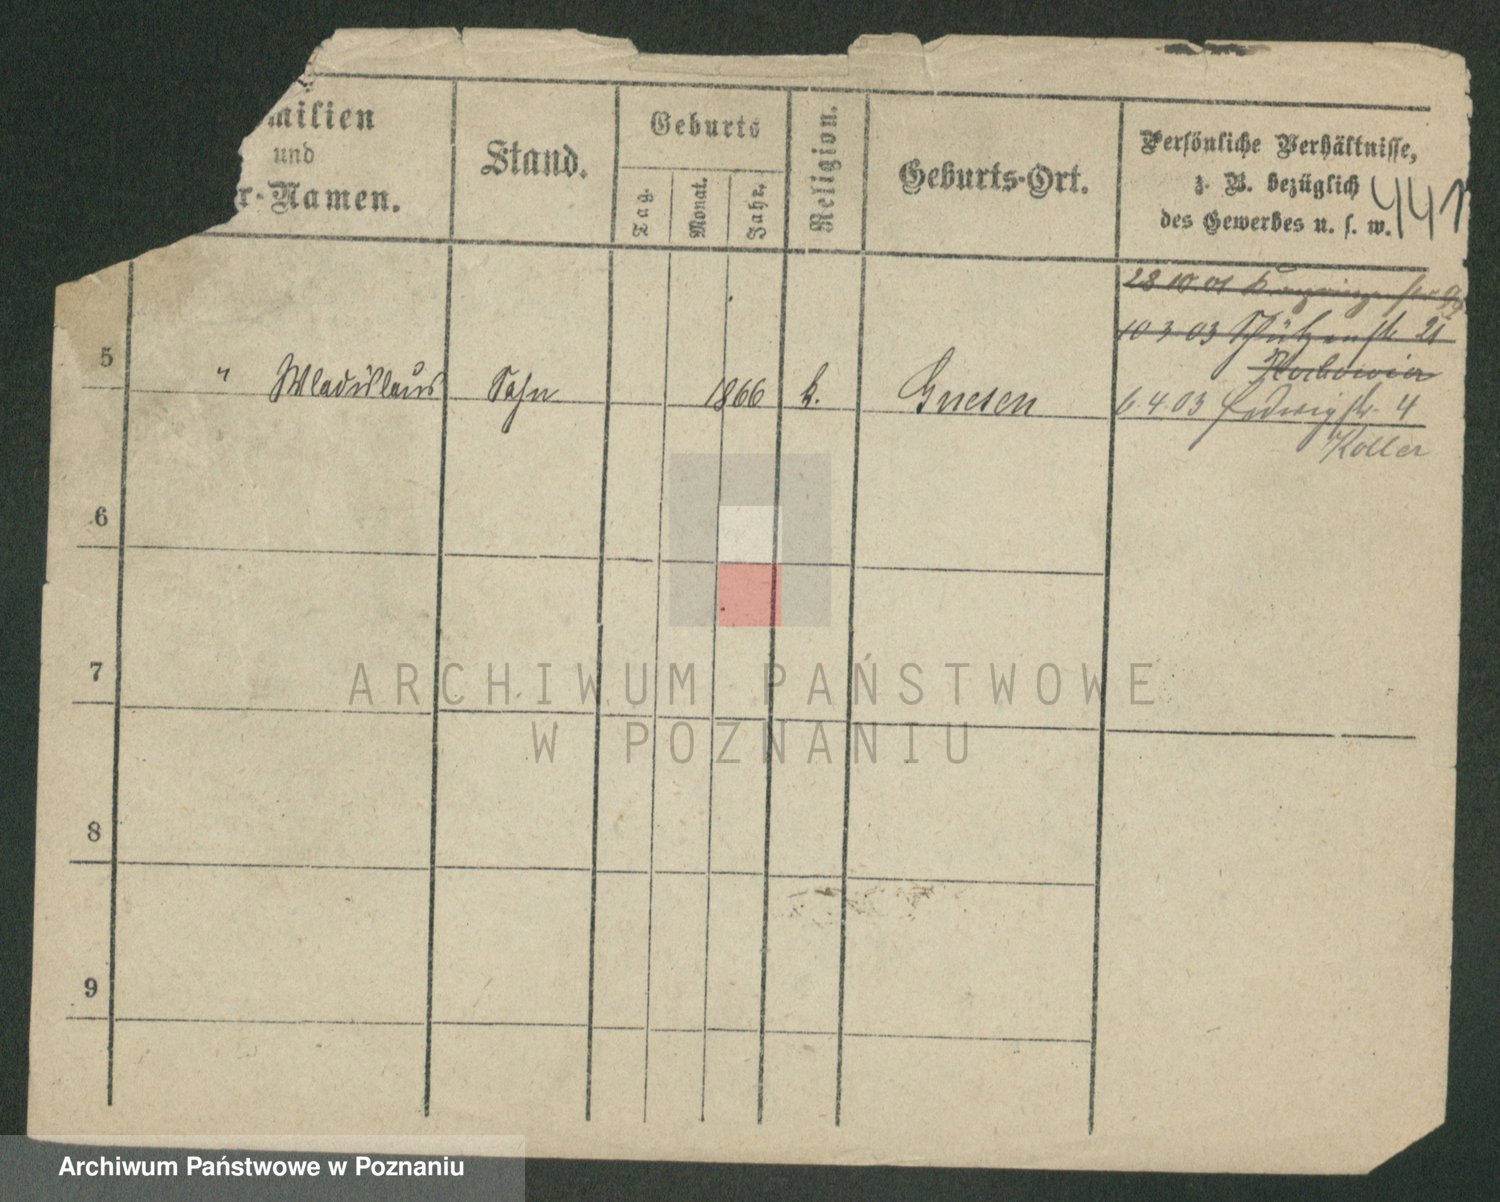 milien
und
r-Namen.
Stand.
Geburts
Tag.
Monat.
Jahr.
Religion.
Geburts-Ort.
Persönliche Verhältnisse,
z. B. bezüglich
des Gewerbes u. s. w.
441
28 10.01
10 3.03 Schützenstr 21
5 " Wladislaus Sohn 1866 k. Gnesen
6.4.03 Hedwigstr. 4
Koller
6
7
8
9
ARCHIWUM PAŃSTWOWE
W POZNANIU
Archiwum Państwowe w Poznaniu